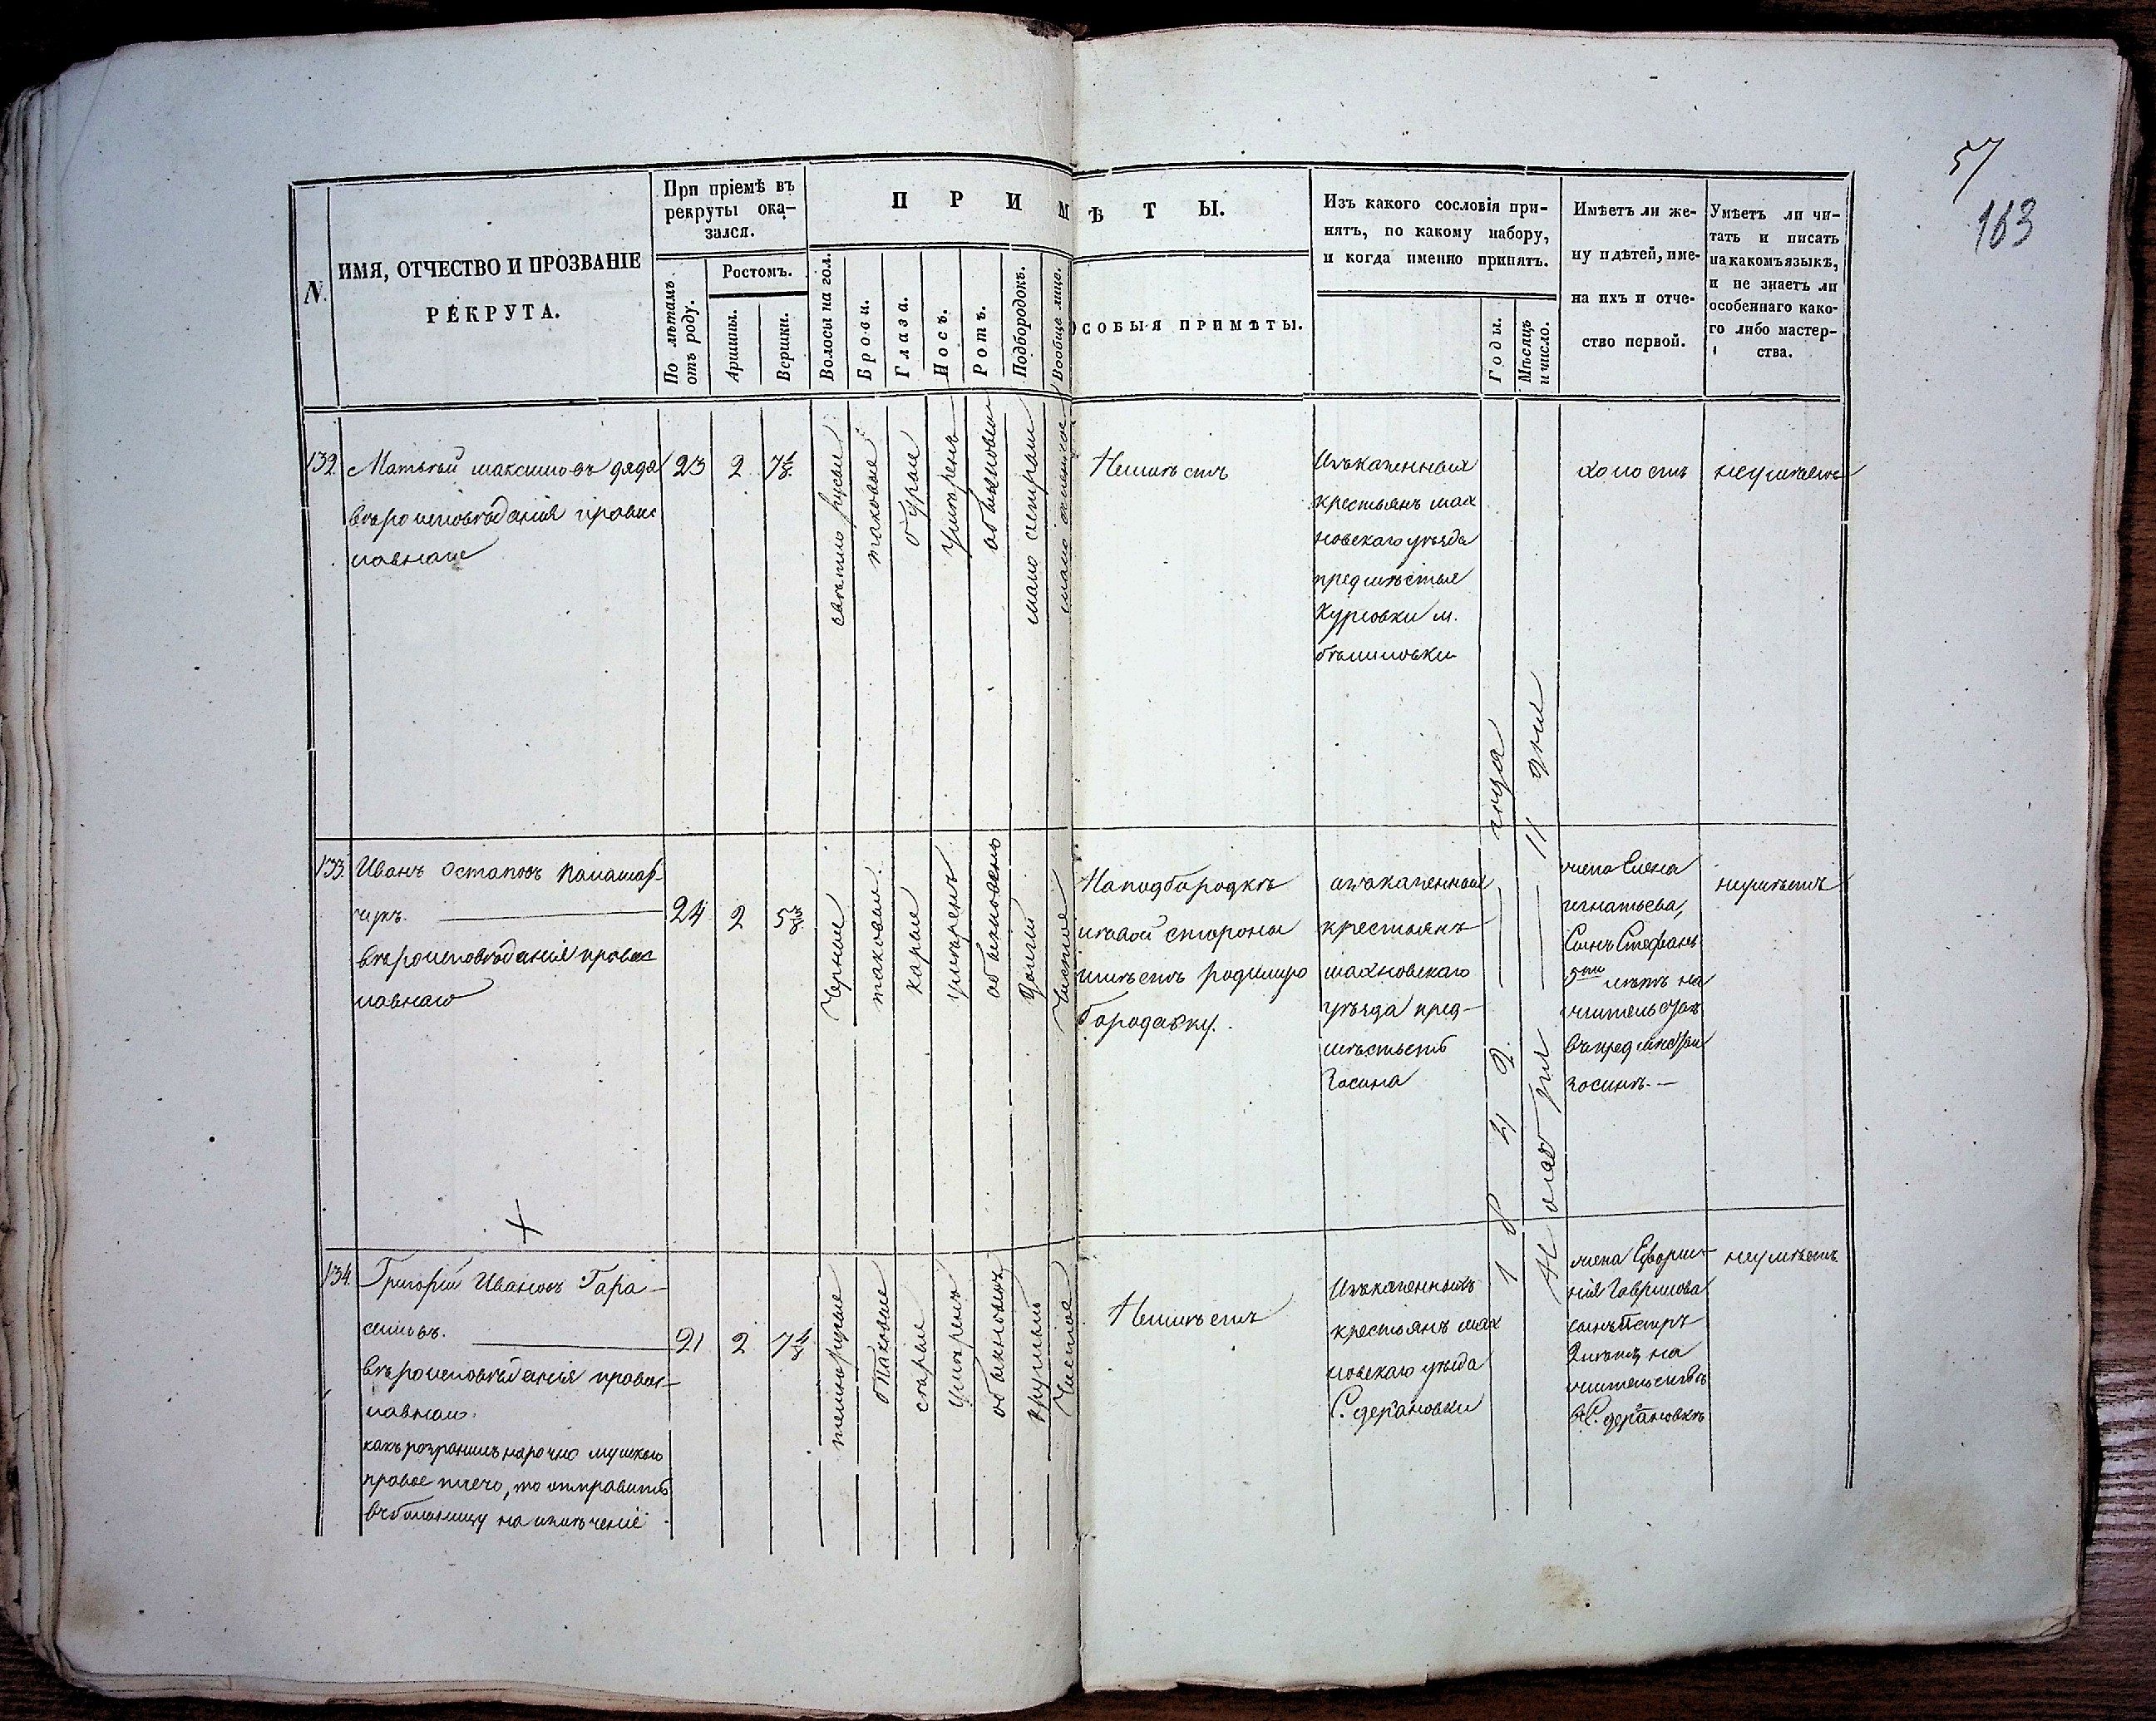 57
163
N.
ИМЯ, ОТЧЕСТВО И ПРОЗВАНІЕ
РЕКРУТА.
При пріемѣ въ
рекруты ока-
зался.
По лѣтамъ
отъ роду.
Ростомъ.
Аршины.
Вершки.
П Р И М Ѣ Т Ы.
Волосы на гол.
Брови.
Глаза.
Носъ.
Ротъ.
Подбородокъ.
Вообще лице.
ОСОБЫЯ ПРИМѢТЫ.
Изъ какого сословія при-
нятъ, по какому набору,
и когда именно принятъ.
Годы.
Мѣсяцъ
и число.
Имѣетъ ли же-
ну и дѣтей, име-
на ихъ и отче-
ство первой.
Умѣетъ ли чи-
тать и писать
на какомъ языкѣ,
и не знаетъ ли
особеннаго како-
го либо мастер-
ства.
132.
Матвѣй Максимовъ дяда
вѣроисповѣданія правос
лавнаго
23
2
7
свѣтло русые
таковые
бурые
умѣренъ
обыкновен
мало
мало
Неимѣетъ
Изъ казенныхъ
крестьянъ мах
новскаго уѣзда
предмѣстья
Курловки м.
бѣлиловки
холостъ
неумѣетъ
133.
Иванъ Остаповъ Паламар-
чукъ.
вѣроисповѣданія правос
лавнаго
24
2
5 3/8
Черные
таковыи
карые
умѣренъ
обыкновенъ
долгій
Чистое
На подбородкѣ
лѣвой стороны
имѣетъ родимую
бородавку.
изъ казенныхъ
крестьянъ
махновскаго
уѣзда пред-
мѣстья
жена Елена
игнатьева,
Сынъ Стефанъ
5ти лѣтъ на
жительствѣ
въ предмѣстьи
неумѣетъ
134.
Григорій Ивановъ Гара-
симовъ.
вѣроисповѣданія правос-
лавнаго.
какъ розранилъ нарочно мушкою
правое плечо, то отправить
въ больницу на излѣченіе
21
2
7 4/8
темнорусые
таковые
старые
умѣренъ
обыкновенъ
круглый
Чистое
Неимѣетъ
Изъ казенныхъ
крестьянъ мах
новскаго уѣзда
С. дергановки
жена Ефроси-
нія Гаврилова
сынъ Петръ
2 лѣтъ на
жительствѣ
въ С. дергановкѣ
неумѣетъ.
1842 года
Ноября 11 дня